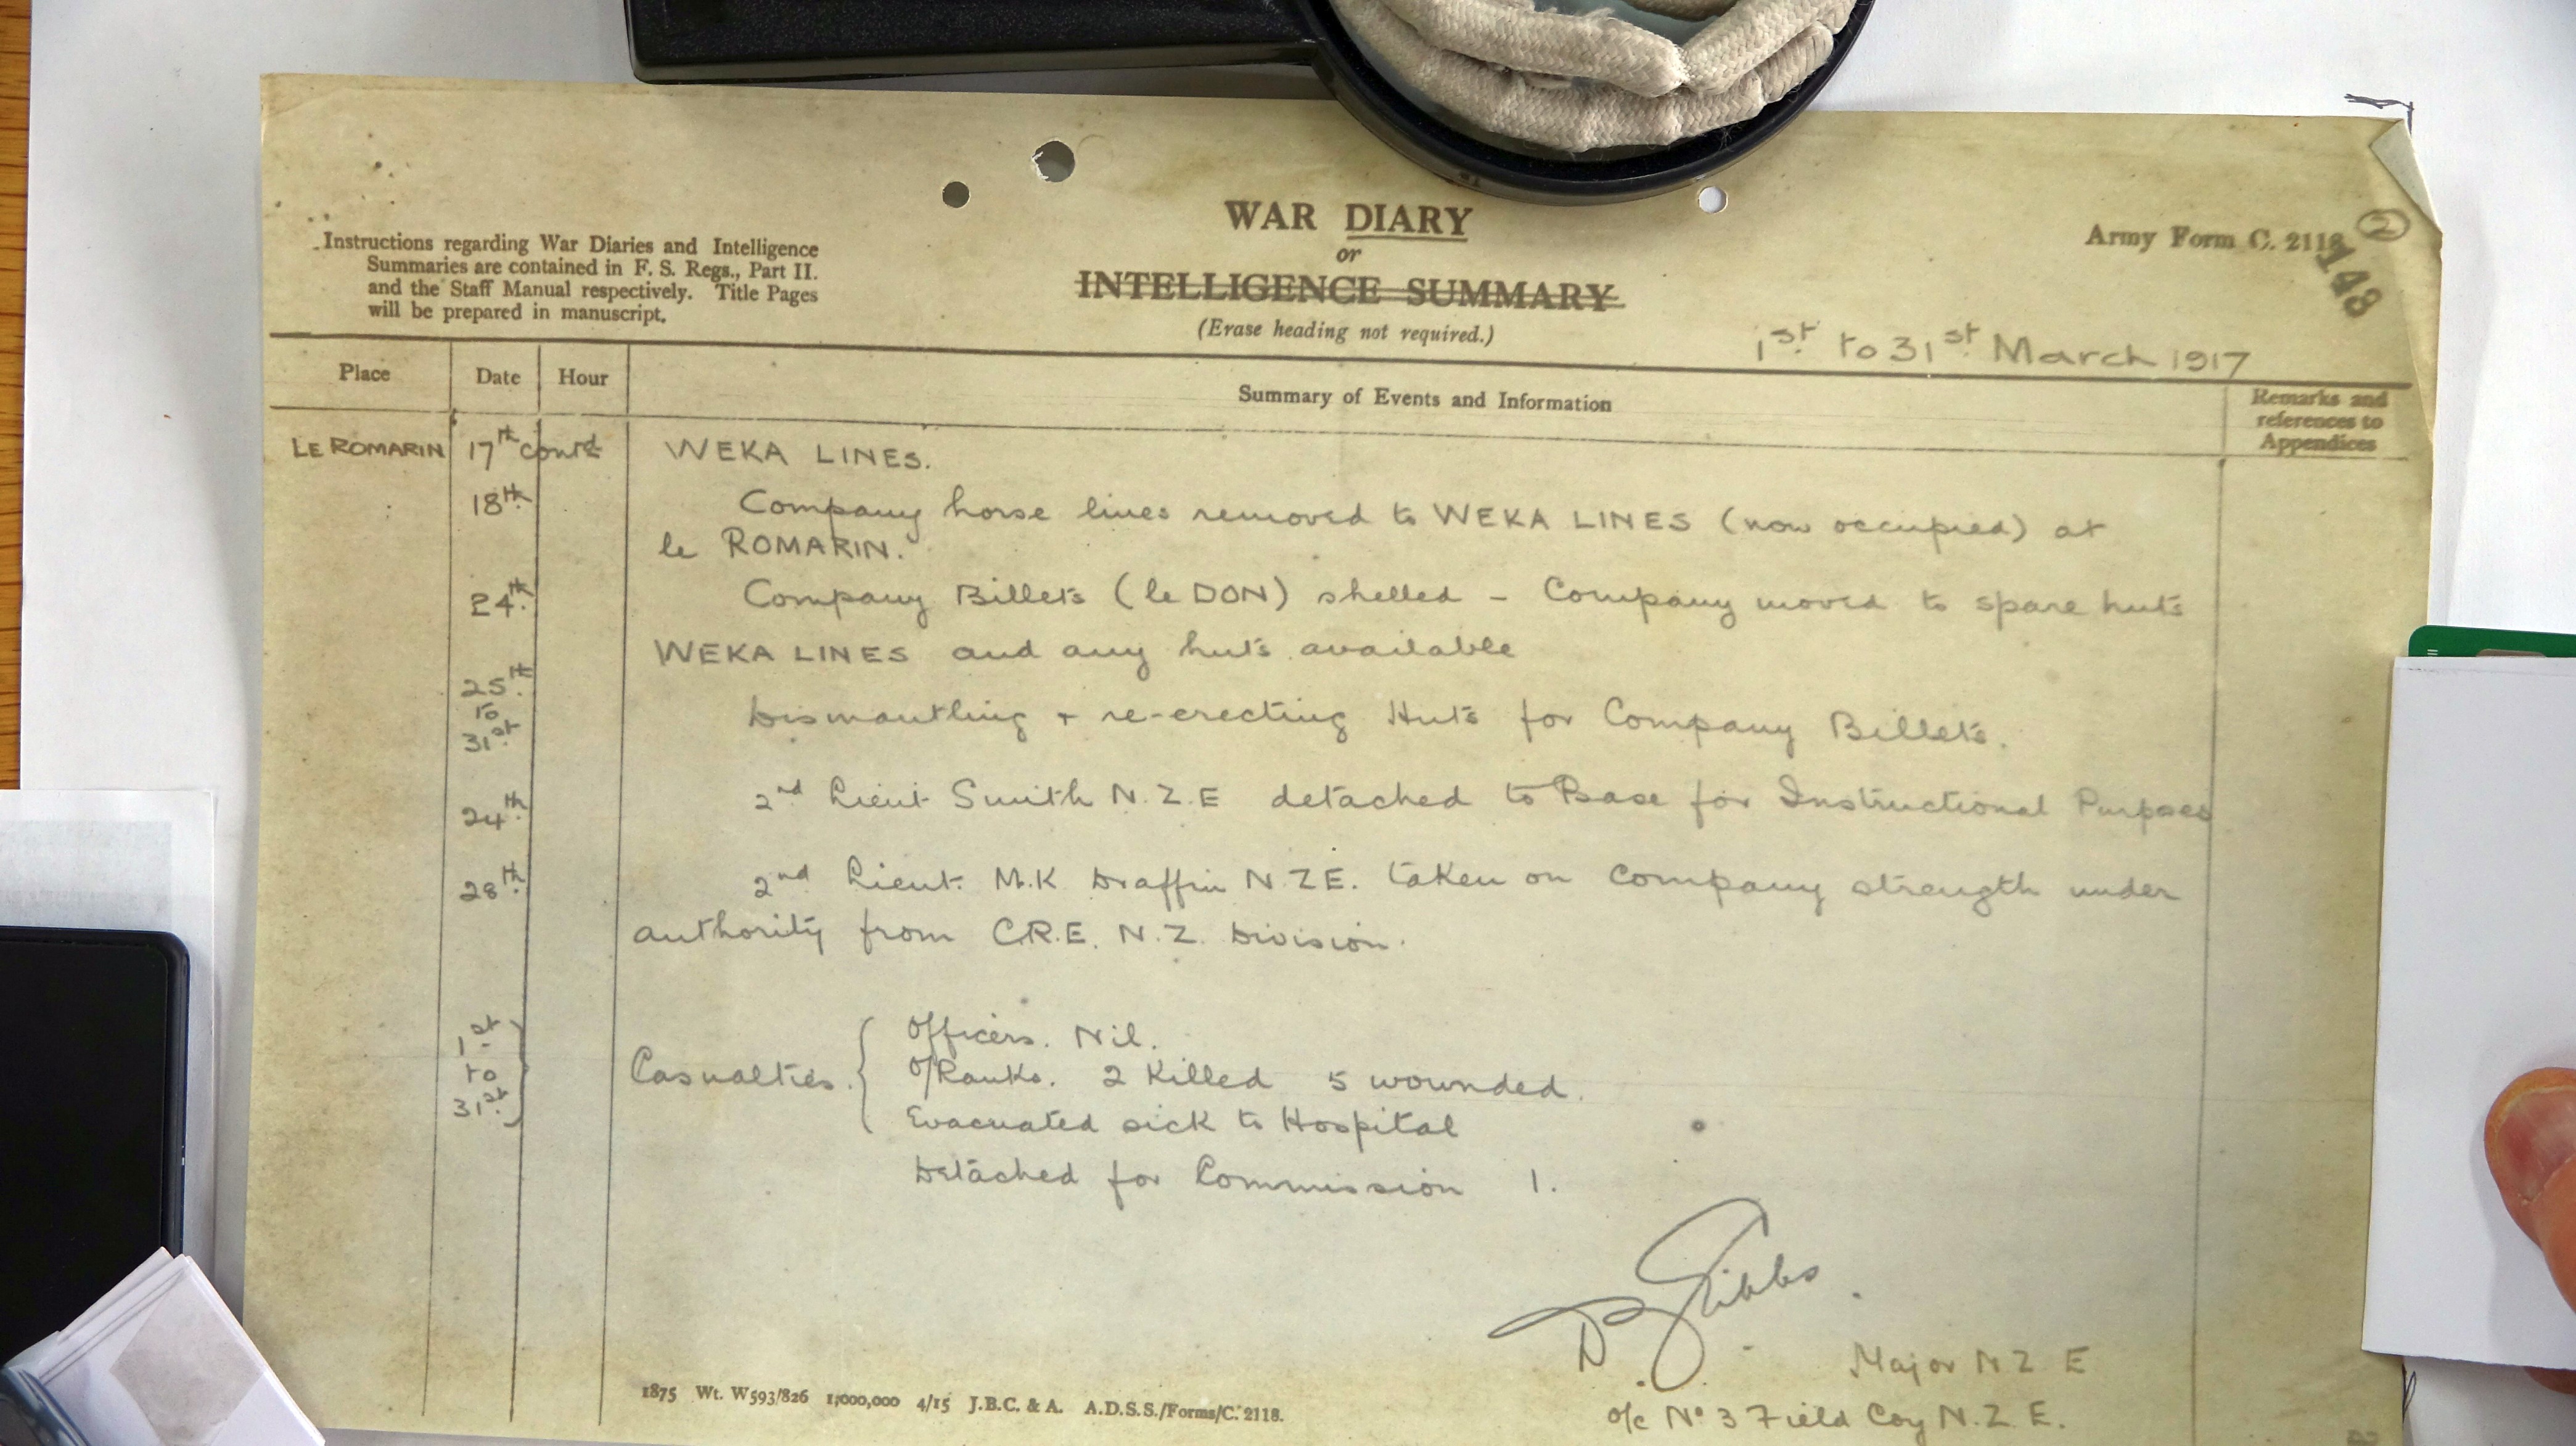 WAR DIARY
or
INTELLIGENCE SUMMARY
(Erase heading not required.)
Instructions regarding War Diaries and Intelligence
Summaries are contained in F. S. Regs., Part II.
and the Staff Manual respectively. Title Pages
will be prepared in manuscript.
Army Form C. 2118
2
148
1st to 31st March 1917
Place Date Hour Summary of Events and Information Remarks and
references to
Appendices
LE ROMARIN 17th contd WEKA LINES.
18th Company horse lines removed to WEKA LINES (now occupied) at
le ROMARIN.
24th Company Billets (le DON) shelled - Company moved to spare huts
WEKA LINES and any huts available
25th
to Dismantling + re-erecting Huts for Company Billets.
31st
24th 2nd Lieut Smith N.Z.E detached to Base for Instructional Purposes
28th 2nd Lieut. M.K Draffin N Z E. taken on Company strength under
authority from C.R.E. N.Z. Division.
1st Officers. Nil.
to Casualties. O/Ranks. 2 Killed 5 wounded.
31st Evacuated sick to Hospital
Detached for Commission 1.
Gibbs
Major N Z E
o/c No 3 Field Coy N.Z.E.
1875 Wt. W593/826 1,000,000 4/15 J.B.C. & A. A.D.S.S./Forms/C. 2118.